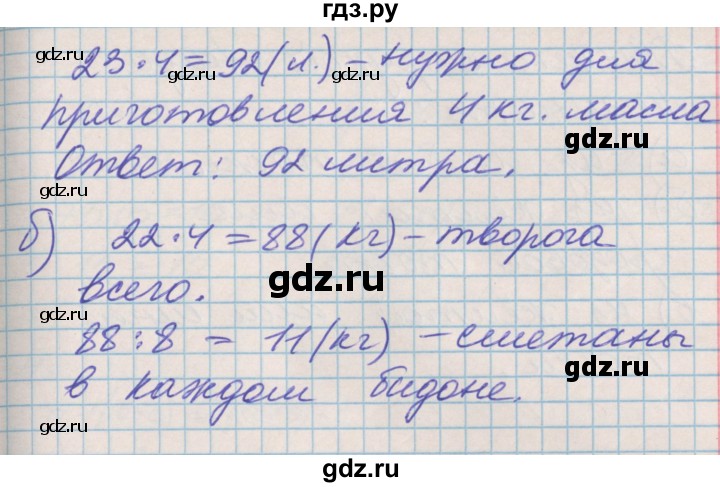 гдз.ру
23·4=92(л.) – нужно для
приготовления 4 кг. масла
Ответ: 92 литра.
б) 22·4=88(кг) – творога
всего.
88:8 = 11(кг) – сметаны
в каждом бидоне.
gdz.ru
gdz.ru
gdz.ru
gdz.ru
gdz.ru
gdz.ru
gdz.ru
gdz.ru
gdz.ru
gdz.ru
gdz.ru